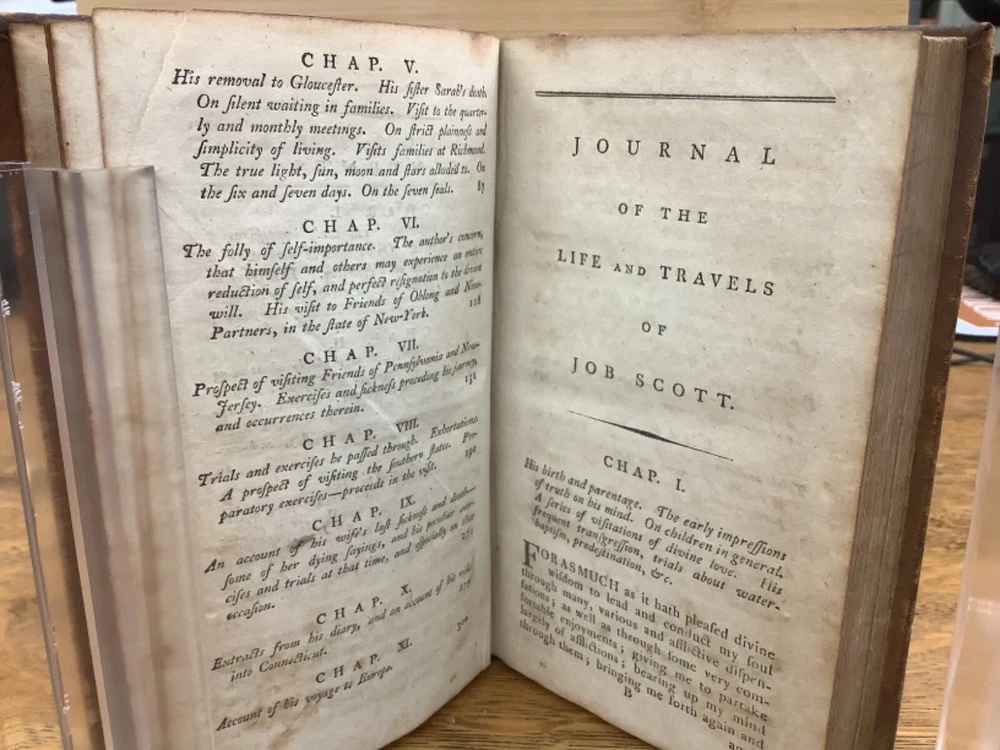 CHAP. V.
His removal to Gloucester. His ſiſter Sarah's death.
On ſilent waiting in families. Viſit to the quarter-
ly and monthly meetings. On ſtrict plainneſs and
ſimplicity of living. Viſits families at Richmond.
The true light, ſun, moon and ſtars alluded to. On
the ſix and ſeven days. On the ſeven ſeals. 87
CHAP. VI.
The folly of ſelf-importance. The author's concern,
that himſelf and others may experience an entire
reduction of ſelf, and perfect reſignation to the divine
will. His viſit to Friends of Oblong and Nine-
Partners, in the ſtate of New-York. 118
CHAP. VII.
Proſpect of viſiting Friends of Pennſylvania and New-
Jerſey. Exerciſes and ſickneſs preceding his journey,
and occurrences therein. 131
CHAP. VIII.
Trials and exerciſes he paſſed through. Exhortations.
A proſpect of viſiting the ſouthern ſtates. Pre-
paratory exerciſes—proceeds in the viſit. 190
CHAP. IX.
An account of his wife's laſt ſickneſs and death—
ſome of her dying ſayings, and his peculiar exer-
ciſes and trials at that time, and eſpecially on that
occaſion.
CHAP. X.
Extracts from his diary, and an account of his viſit
into Connecticut.
CHAP. XI.
Account of his voyage to Europe.
JOURNAL
OF THE
LIFE AND TRAVELS
OF
JOB SCOTT.
CHAP. I.
His birth and parentage. The early impreſſions
of truth on his mind. On children in general.
A ſeries of viſitations of divine love. His
frequent tranſgreſſion, trials about water-
baptiſm, predeſtination, &c.
FORASMUCH as it hath pleaſed divine
wiſdom to lead and conduct my ſoul
through many, various and afflictive diſpen-
ſations; as well as through ſome very com-
fortable enjoyments; giving me to partake
largely of afflictions; bearing up my mind
through them; bringing me forth again and
B